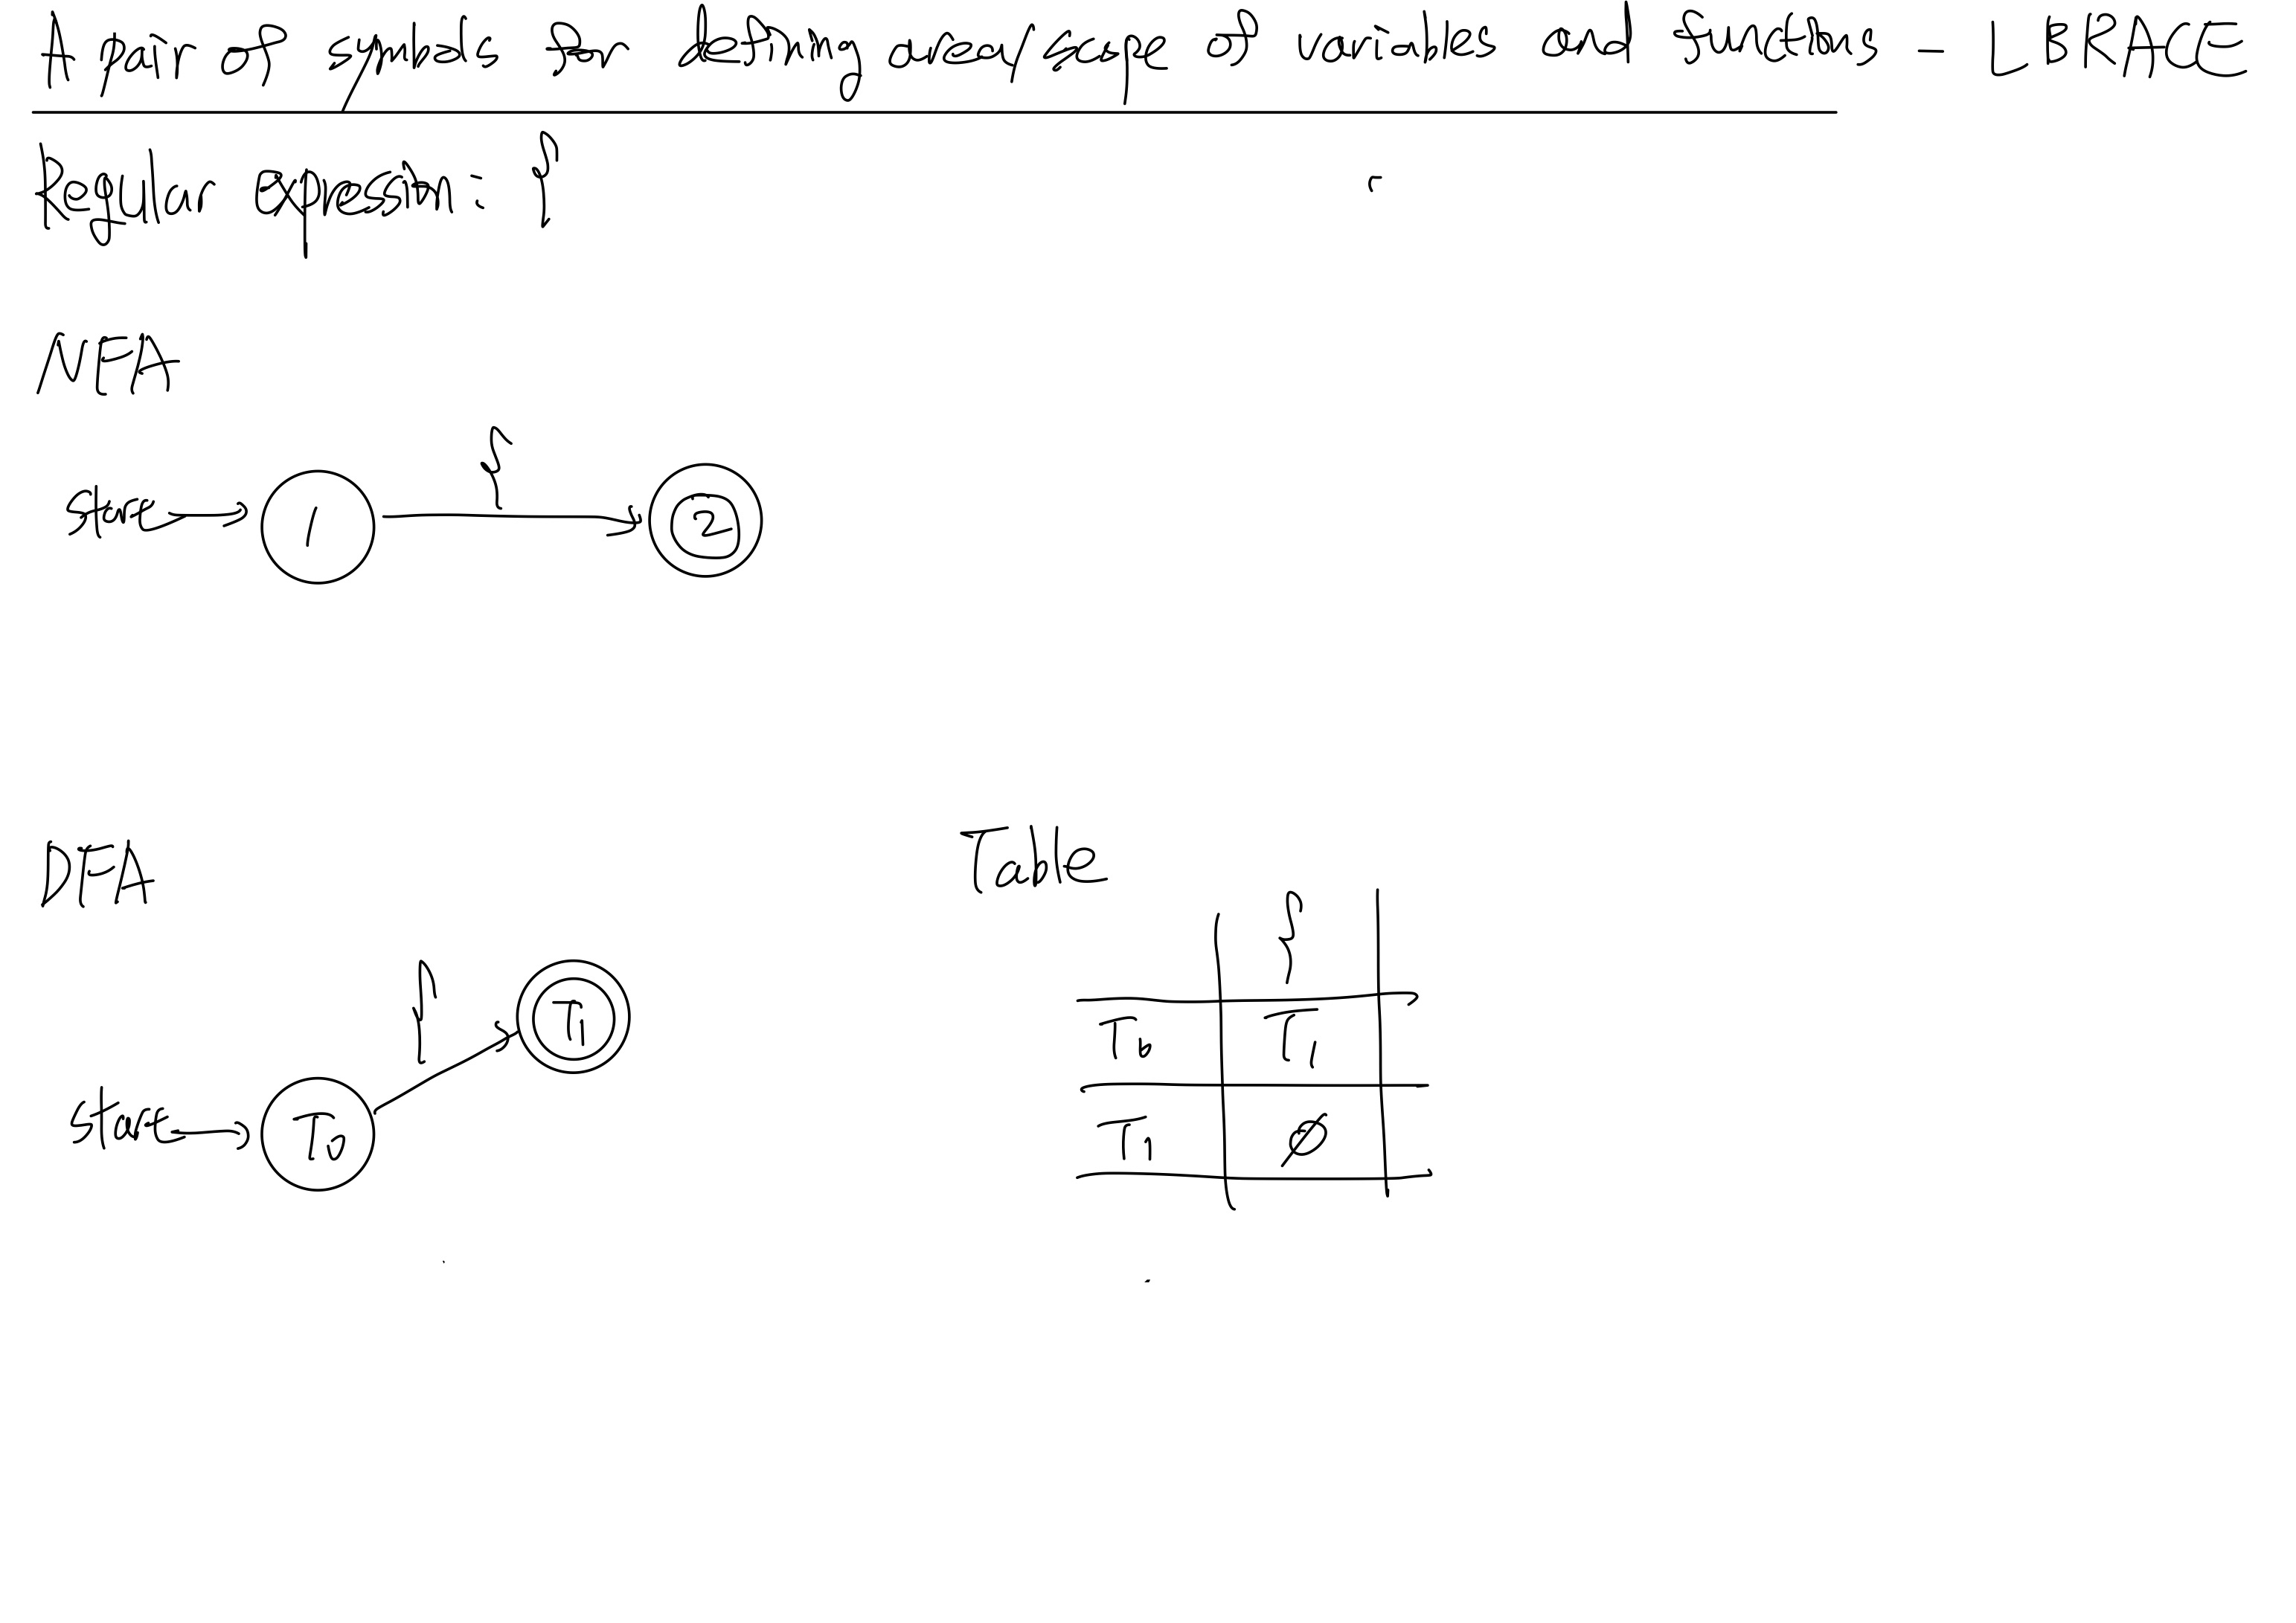 A pair of symbols for defining area/scope of variables and functions - LBRACE
Regular expression: {
NFA
{
start 1 2
DFA
Table
{
{
T0 T1
T1
start T0
T1 ∅